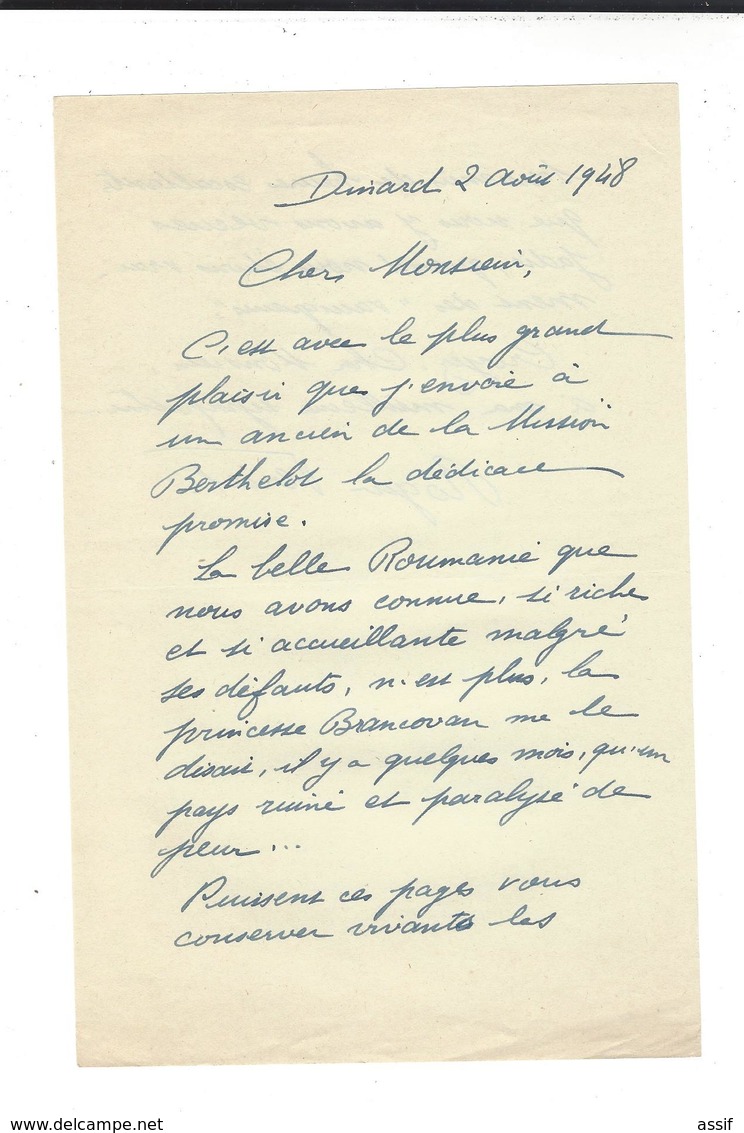 Dinard 2 août 1948
Cher Monsieur,
C'est avec le plus grand
plaisir que j'envoie à
un ancien de la Mission
Berthelot la dédicace
promise.
La belle Roumanie que
nous avons connue, si riche
et si accueillante malgré
ses défauts, n'est plus, la
princesse Brancovan me le
disait, il y a quelques mois, qu'un
pays ruiné et paralysé de
peur...
Puissent ces pages vous
conserver vivants les
www.delcampe.net
assif